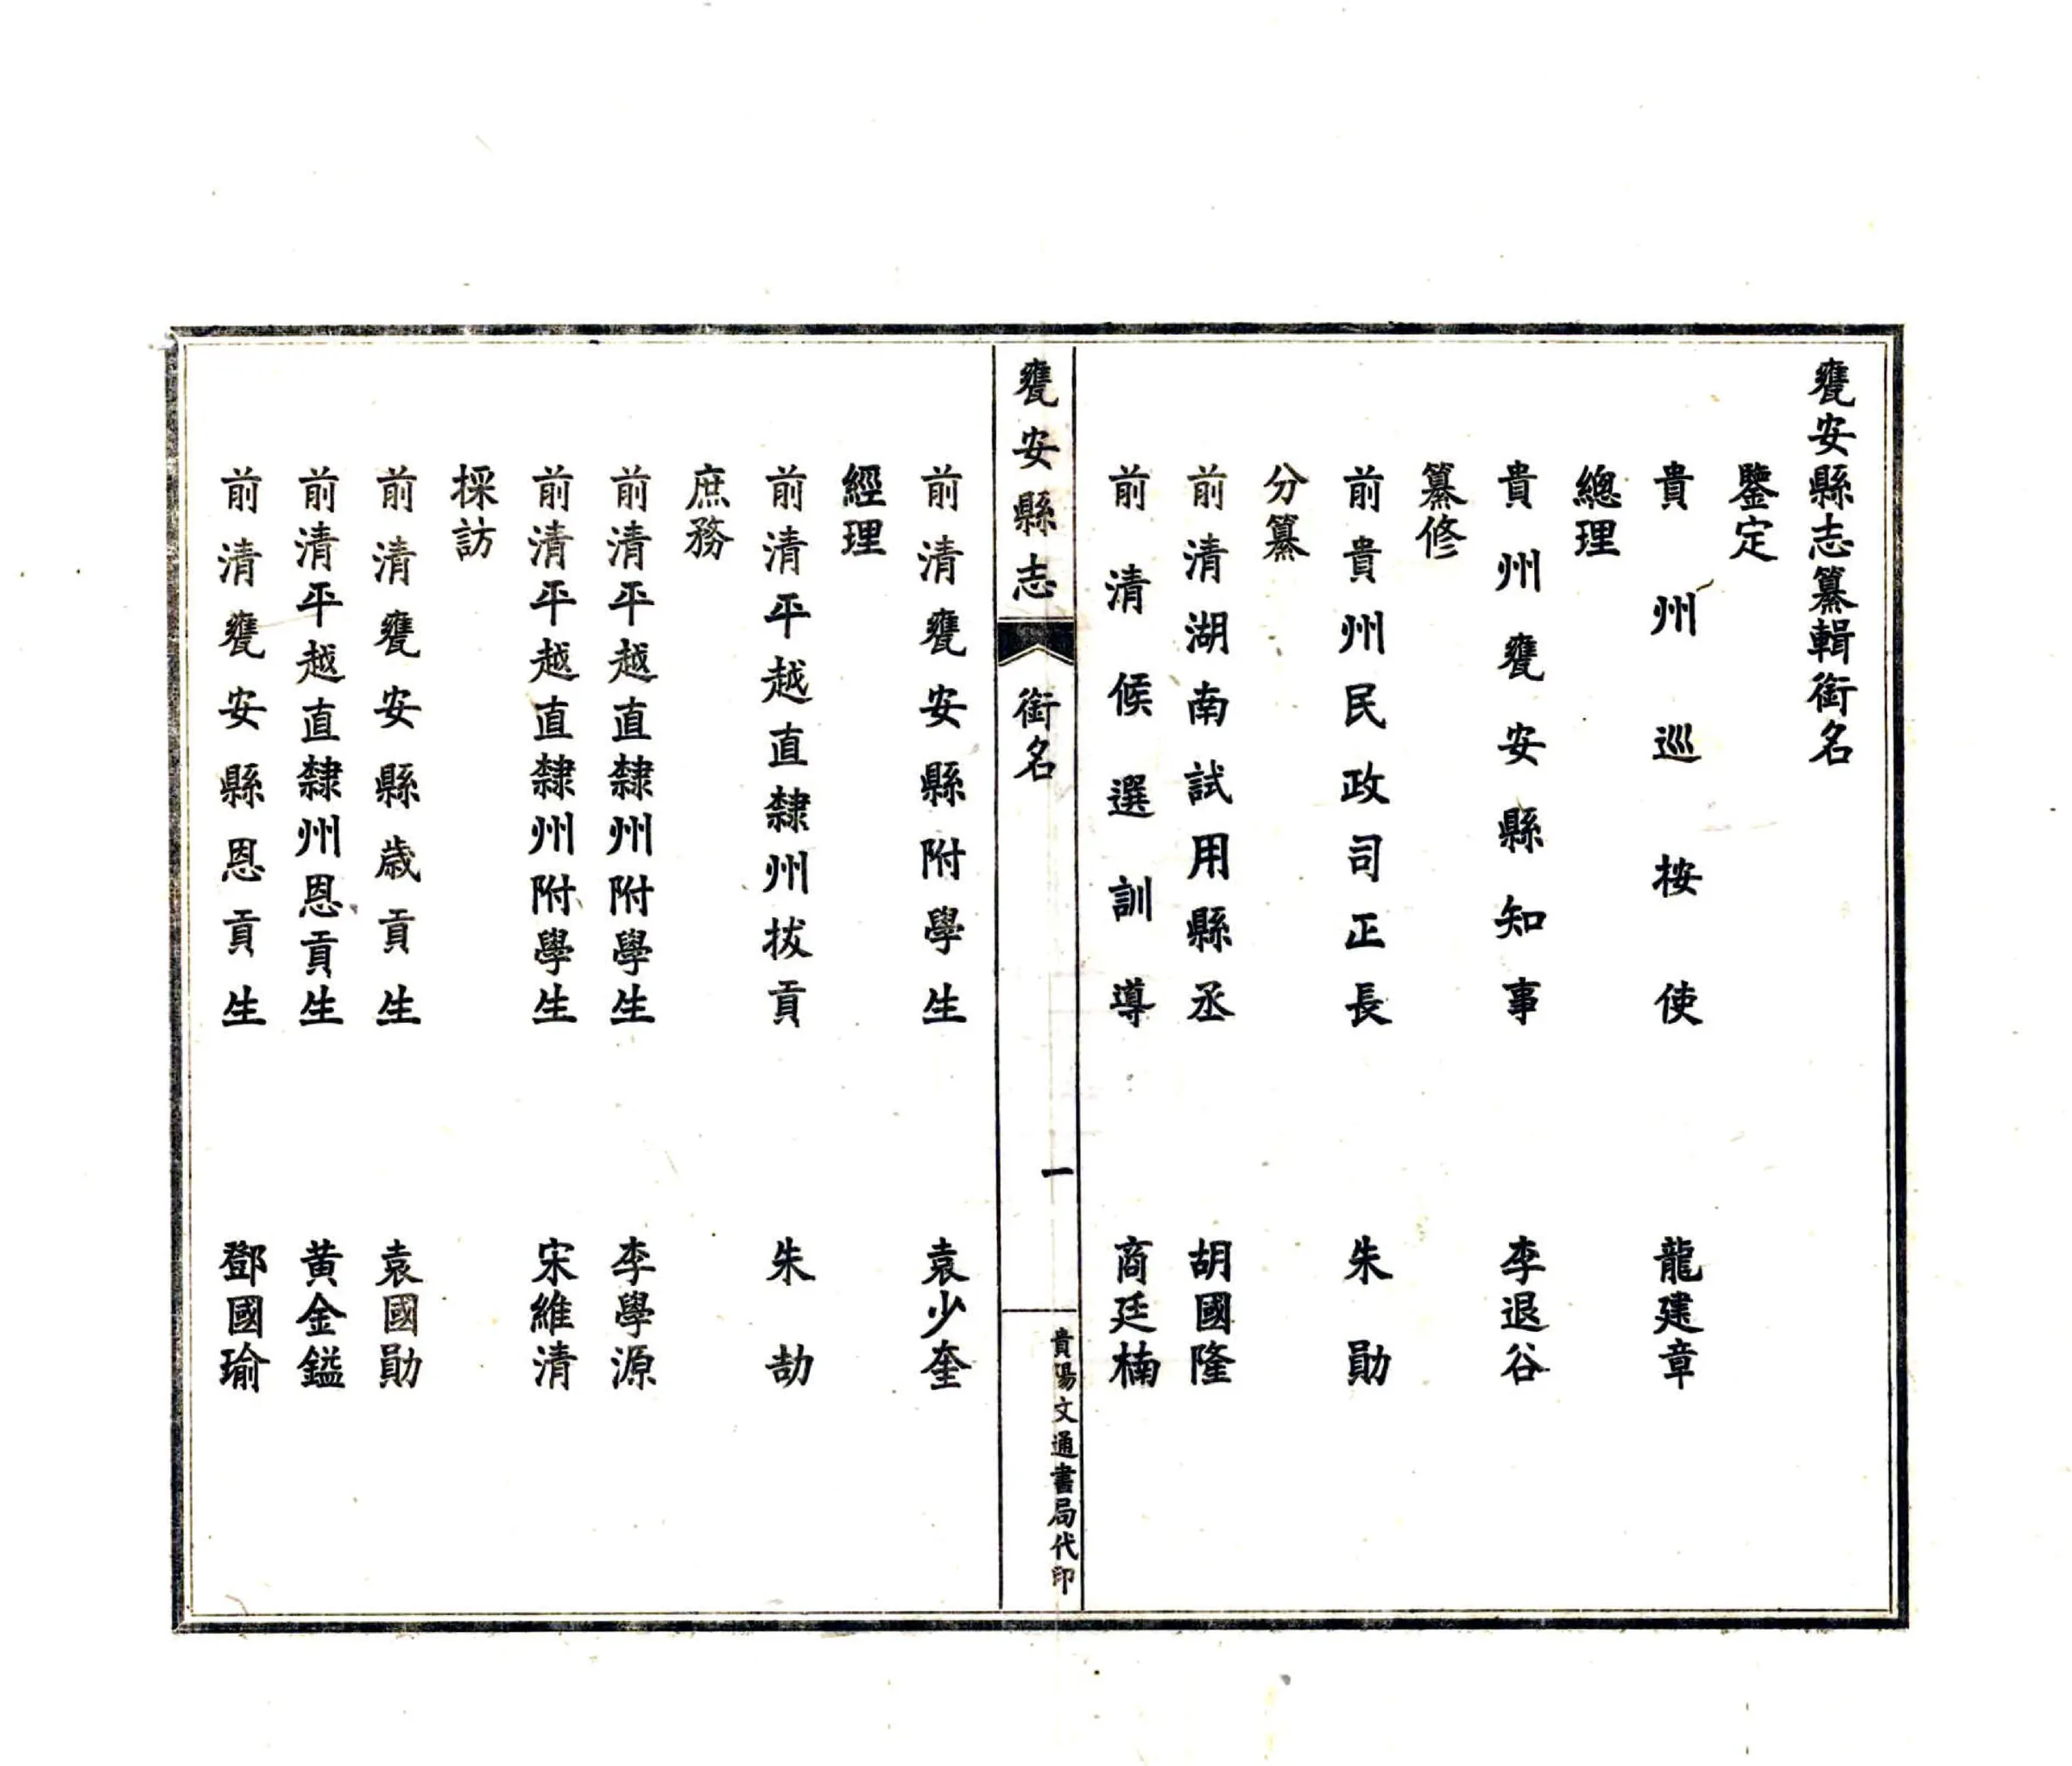 甕安縣志纂輯銜名
鑒定
貴州巡按使 龍建章
總理
貴州甕安縣知事 李退谷
纂修
前貴州民政司正長 朱勛
分纂
前清湖南試用縣丞 胡國隆
前清候選訓導 商廷楠
甕安縣志 銜名 一 貴陽文通書局代印
前清甕安縣附學生 袁少奎
經理
前清平越直隸州拔貢 朱劼
庶務
前清平越直隸州附學生 李學源
前清平越直隸州附學生 宋維清
採訪
前清甕安縣歲貢生 袁國勛
前清平越直隸州恩貢生 黃金鎰
前清甕安縣恩貢生 鄧國瑜